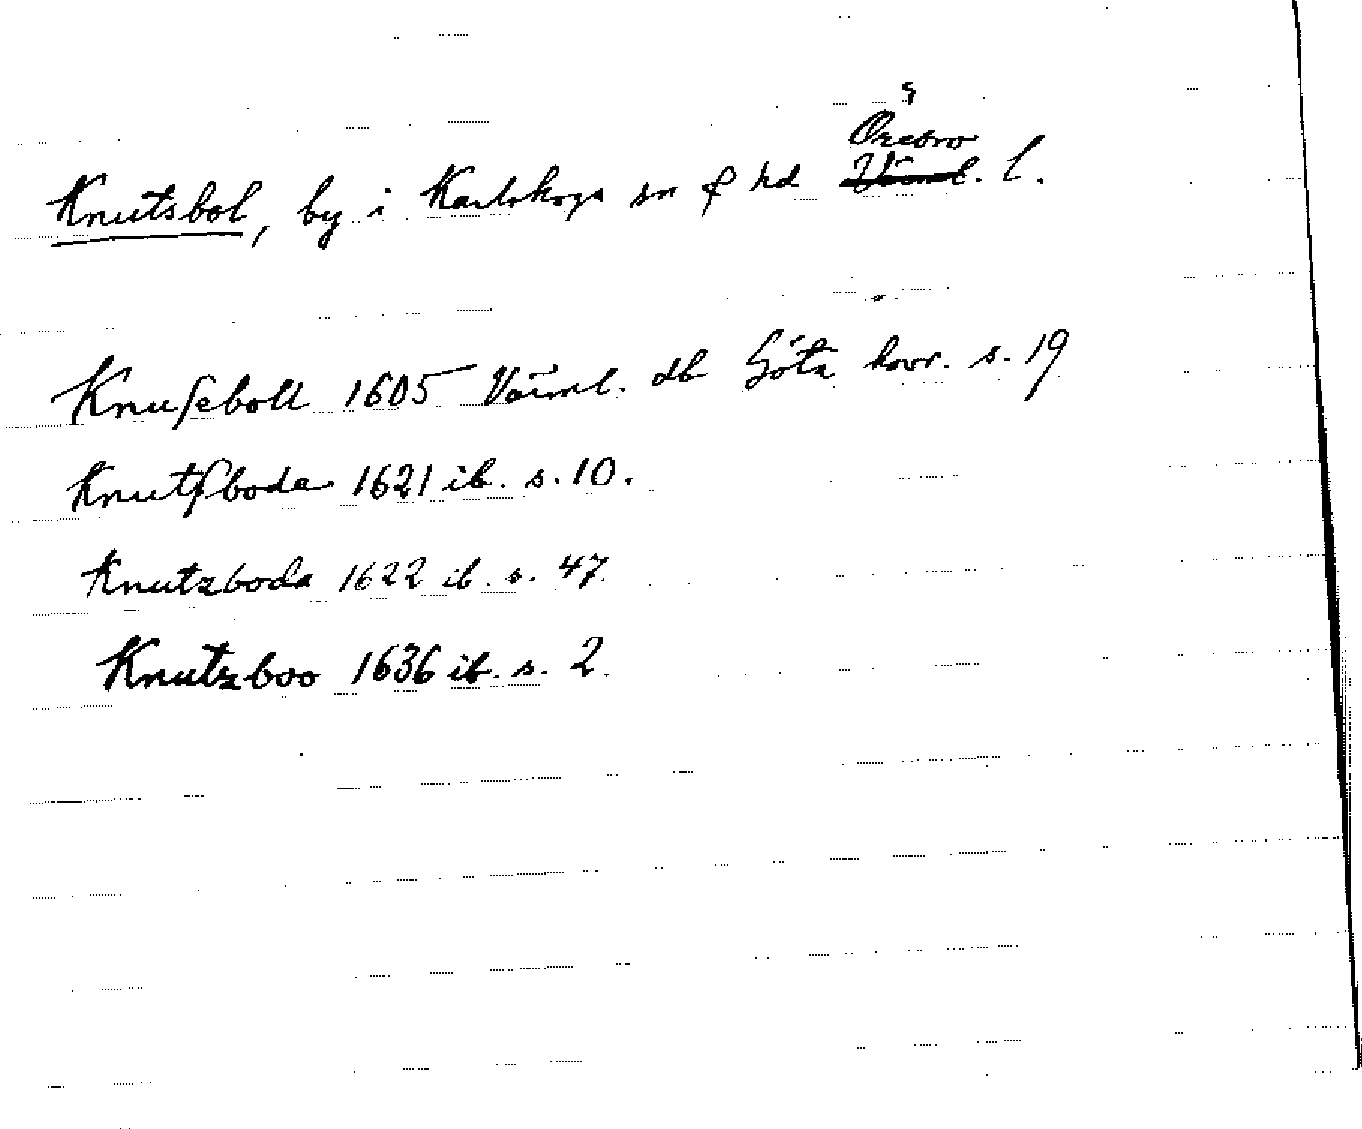 Örebro
Knutsbol, by i Karlskoga sn o hd Värml. l.
Knuseboll 1605 Värml. db Göta hovr. s. 19
Knutsboda 1621 ib. s. 10.
Knutzboda 1622 ib. s. 47
Knutzboo 1636 ib. s. 2.